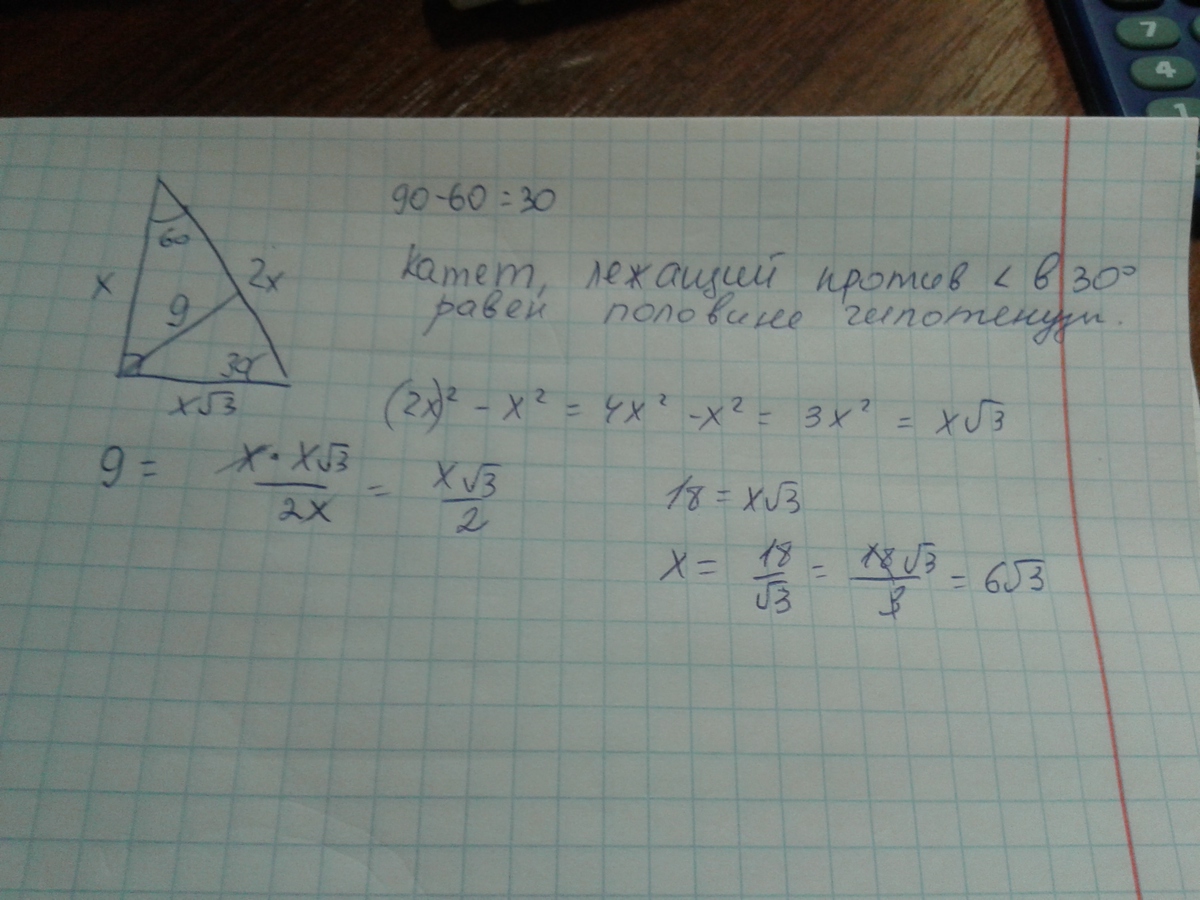 7
4
1
90-60=30
60
x
2x
9
30
x√3
Катет, лежащий против < в 30°
равен половине гипотенузы.
(2x)² - x² = 4x² - x² = 3x² = x√3
9 = x · x√3 / 2x = x√3 / 2
18 = x√3
x = 18/√3 = 18√3/3 = 6√3